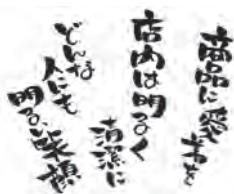 商品に愛を
店内は明るく
清潔に
どんな
人にも
明るい笑顔